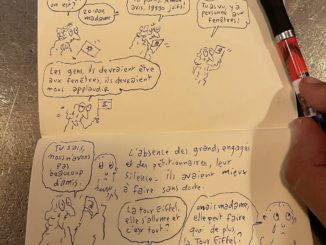 on est?
20-pas,
madame
ans, 1990 juifs!
Tu as vu, y a
personne aux
fenêtres!
Les gens, ils devraient être
aux fenêtres, ils devraient
nous applaudir.
Tu sais,
nous n'avons
pas
beaucoup
d'amis.
L'absence des grands engagés
et des pétitionnaires, leur
silence - ils avaient mieux
à faire sans doute.
La tour Eiffel,
elle s'allume et
c'est tout?
mais madame,
elle peut faire
quoi de plus,
Tour Eiffel?